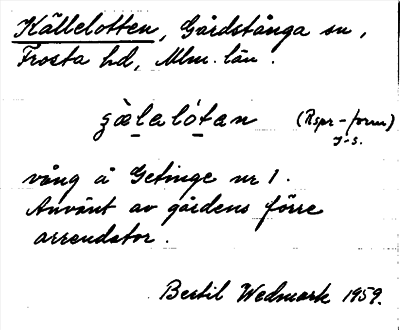 Källelotten, Gårdstånga sn,
Frosta hd, Mlm. län.
gälalótan (Rspr-form)
J-s.
vång å Getinge nr 1.
Använt av gårdens förre
arrendator.
Bertil Wedmark 1959.